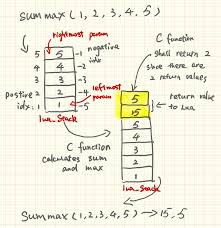 summax(1,2,3,4,5)
rightmost param
5 5 -1 negative
4 4 -2 idx
3 3 -3
postive 2 2 -4 leftmost
idx: 1 1 -5 param
lua_stack
C function
shall return 2
since there are
2 return values
5
15
5
4
3
2
1
return value
to Lua
lua_stack
C function
calculates sum
and max
summax(1,2,3,4,5) → 15,5